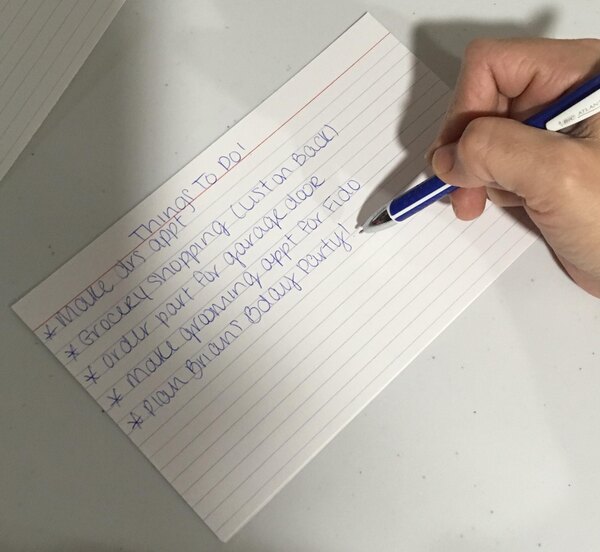 Things To Do!
* Make drs appt
* Grocery shopping (list on back)
* order part for garage door
* make grooming appt for Fido
* Plan Brians Bday Party!